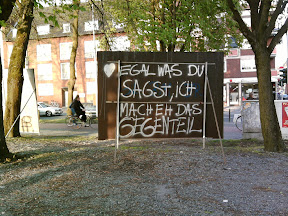 EGAL WAS DU
SAGST, ICH
MACH EH DAS
GEGENTEIL